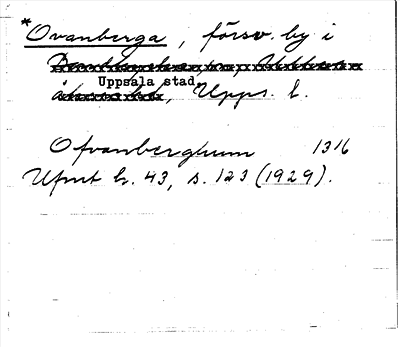 *Ovanberga, försv. by i
Uppsala stad,
Upps. l.
Ofvanberghum 1316
Ufmt h. 43, s. 123 (1929).